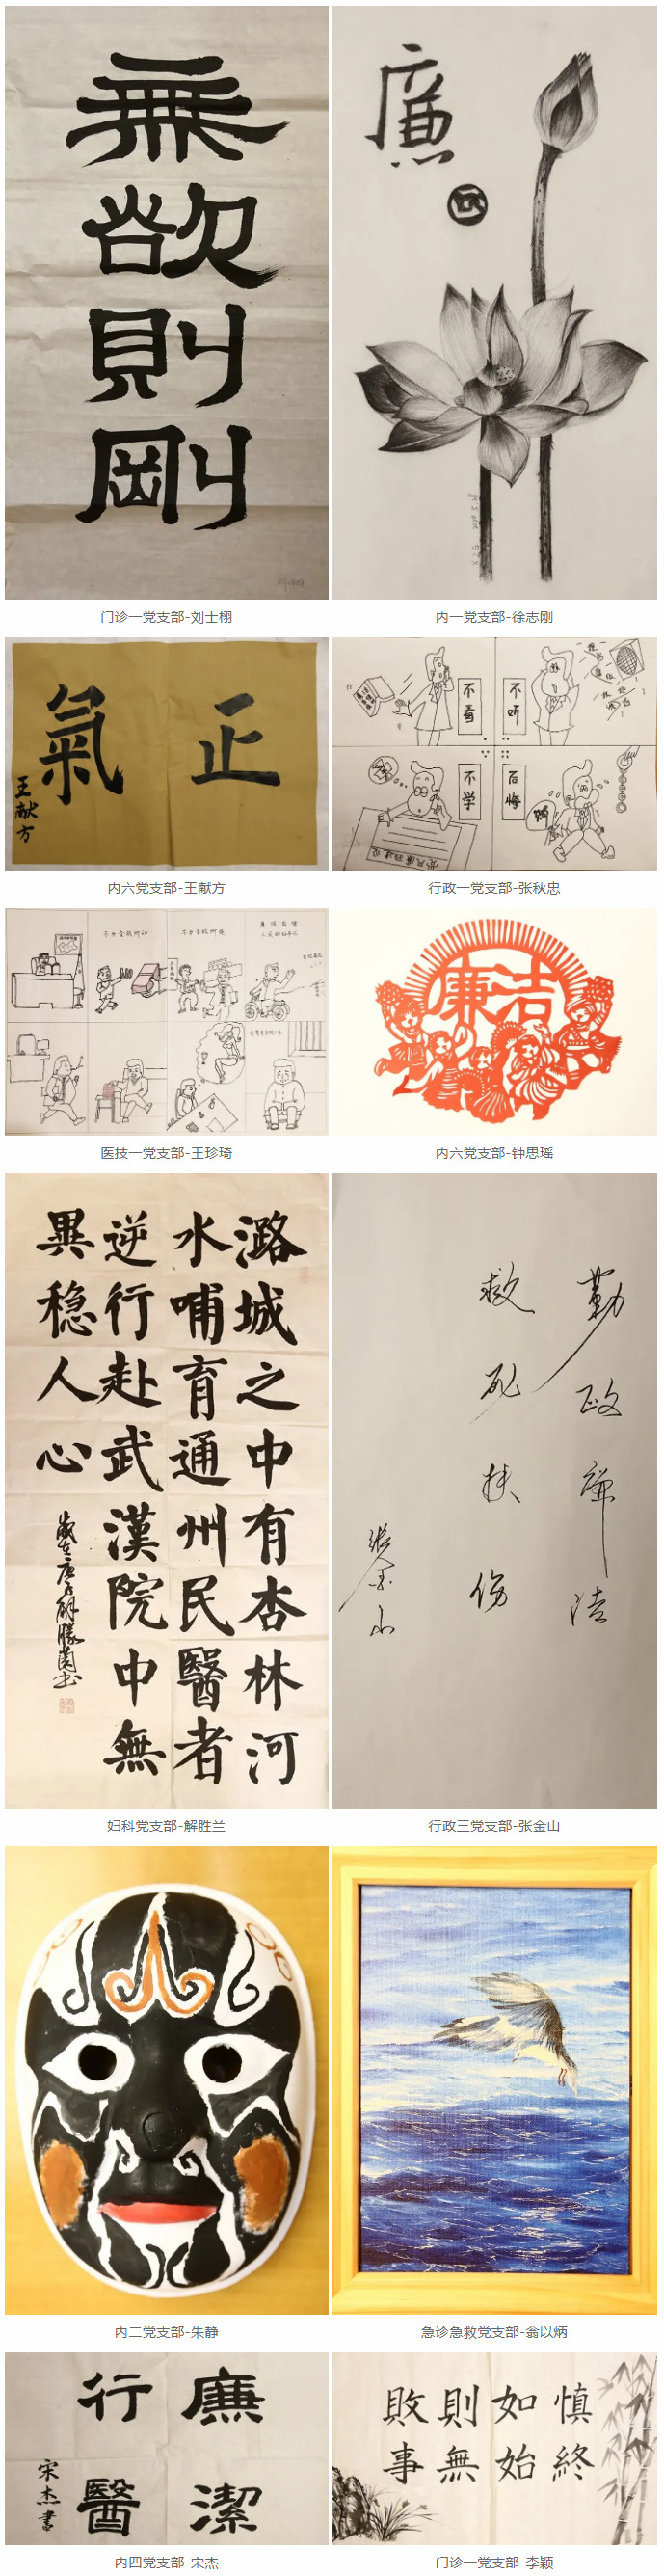 無欲則剛
廉
门诊一党支部-刘士栩
内一党支部-徐志刚
正氣
王献方
内六党支部-王献方
不看
不听
不学
后悔
行政一党支部-张秋忠
不为金钱所动
医技一党支部-王珍琦
廉洁
内六党支部-钟思瑶
潞城之中有杏林河
水哺育通州民醫者
逆行赴武漢院中無
異稳人心
歲在庚子解勝蘭书
妇科党支部-解胜兰
勤政廉洁
救死扶伤
张金山
行政三党支部-张金山
内二党支部-朱静
急诊急救党支部-翁以炳
廉潔
行醫
宋杰書
内四党支部-宋杰
慎終
如始
則無
敗事
门诊一党支部-李颖